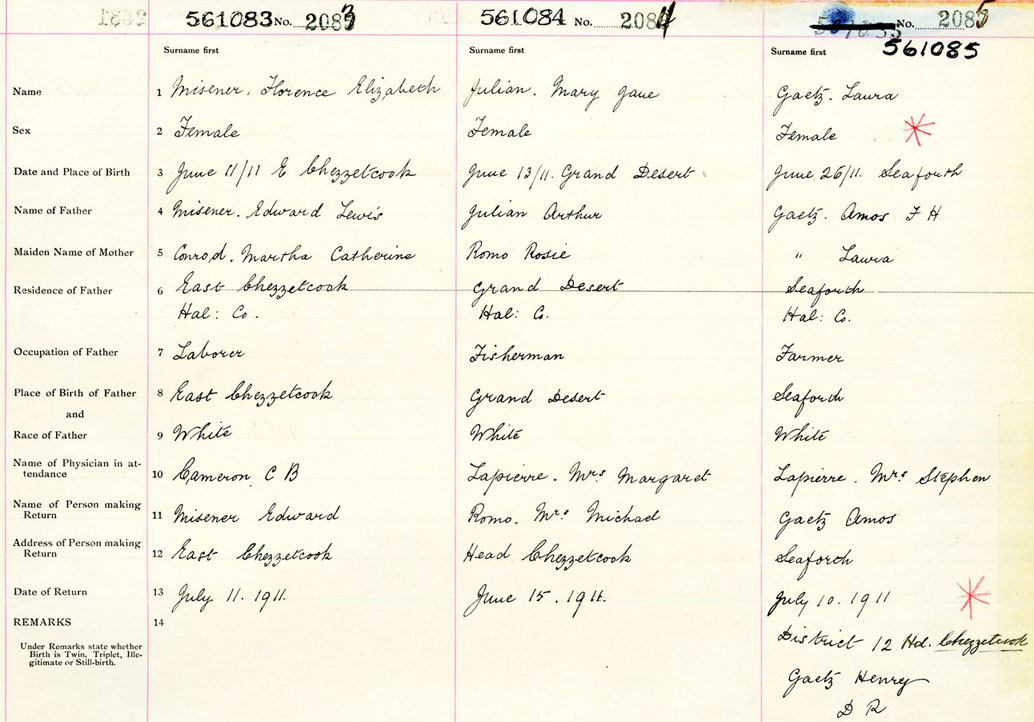 561083 No. 2083
561084 No. 2084
No. 2085
561085
Surname first
Surname first
Surname first
Name 1 Misener. Florence Elizabeth
Julian. Mary Jane
Gaetz. Laura
Sex 2 Female
Female
Female
Date and Place of Birth 3 June 11/11 E Chezzetcook
June 13/11. Grand Desert
June 26/11. Seaforth
Name of Father 4 Misener. Edward Lewis
Julian Arthur
Gaetz. Amos F H
Maiden Name of Mother 5 Conrod. Martha Catherine
Romo Rosie
" Laura
Residence of Father 6 East Chezzetcook
Hal: Co.
Grand Desert
Hal: Co.
Seaforth
Hal: Co.
Occupation of Father 7 Laborer
Fisherman
Farmer
Place of Birth of Father 8 East Chezzetcook
Grand Desert
Seaforth
and
Race of Father 9 White
White
White
Name of Physician in at-
tendance 10 Cameron C B
Lapierre. Mrs Margaret
Lapierre. Mrs Stephen
Name of Person making
Return 11 Misener Edward
Romo. Mrs Michael
Gaetz Amos
Address of Person making
Return 12 East Chezzetcook
Head Chezzetcook
Seaforth
Date of Return 13 July 11. 1911.
June 15. 1911.
July 10. 1911
REMARKS 14
Under Remarks state whether
Birth is Twin, Triplet, Ille-
gitimate or Still-birth.
District 12 Hd. Chezzetcook
Gaetz Henry
D R